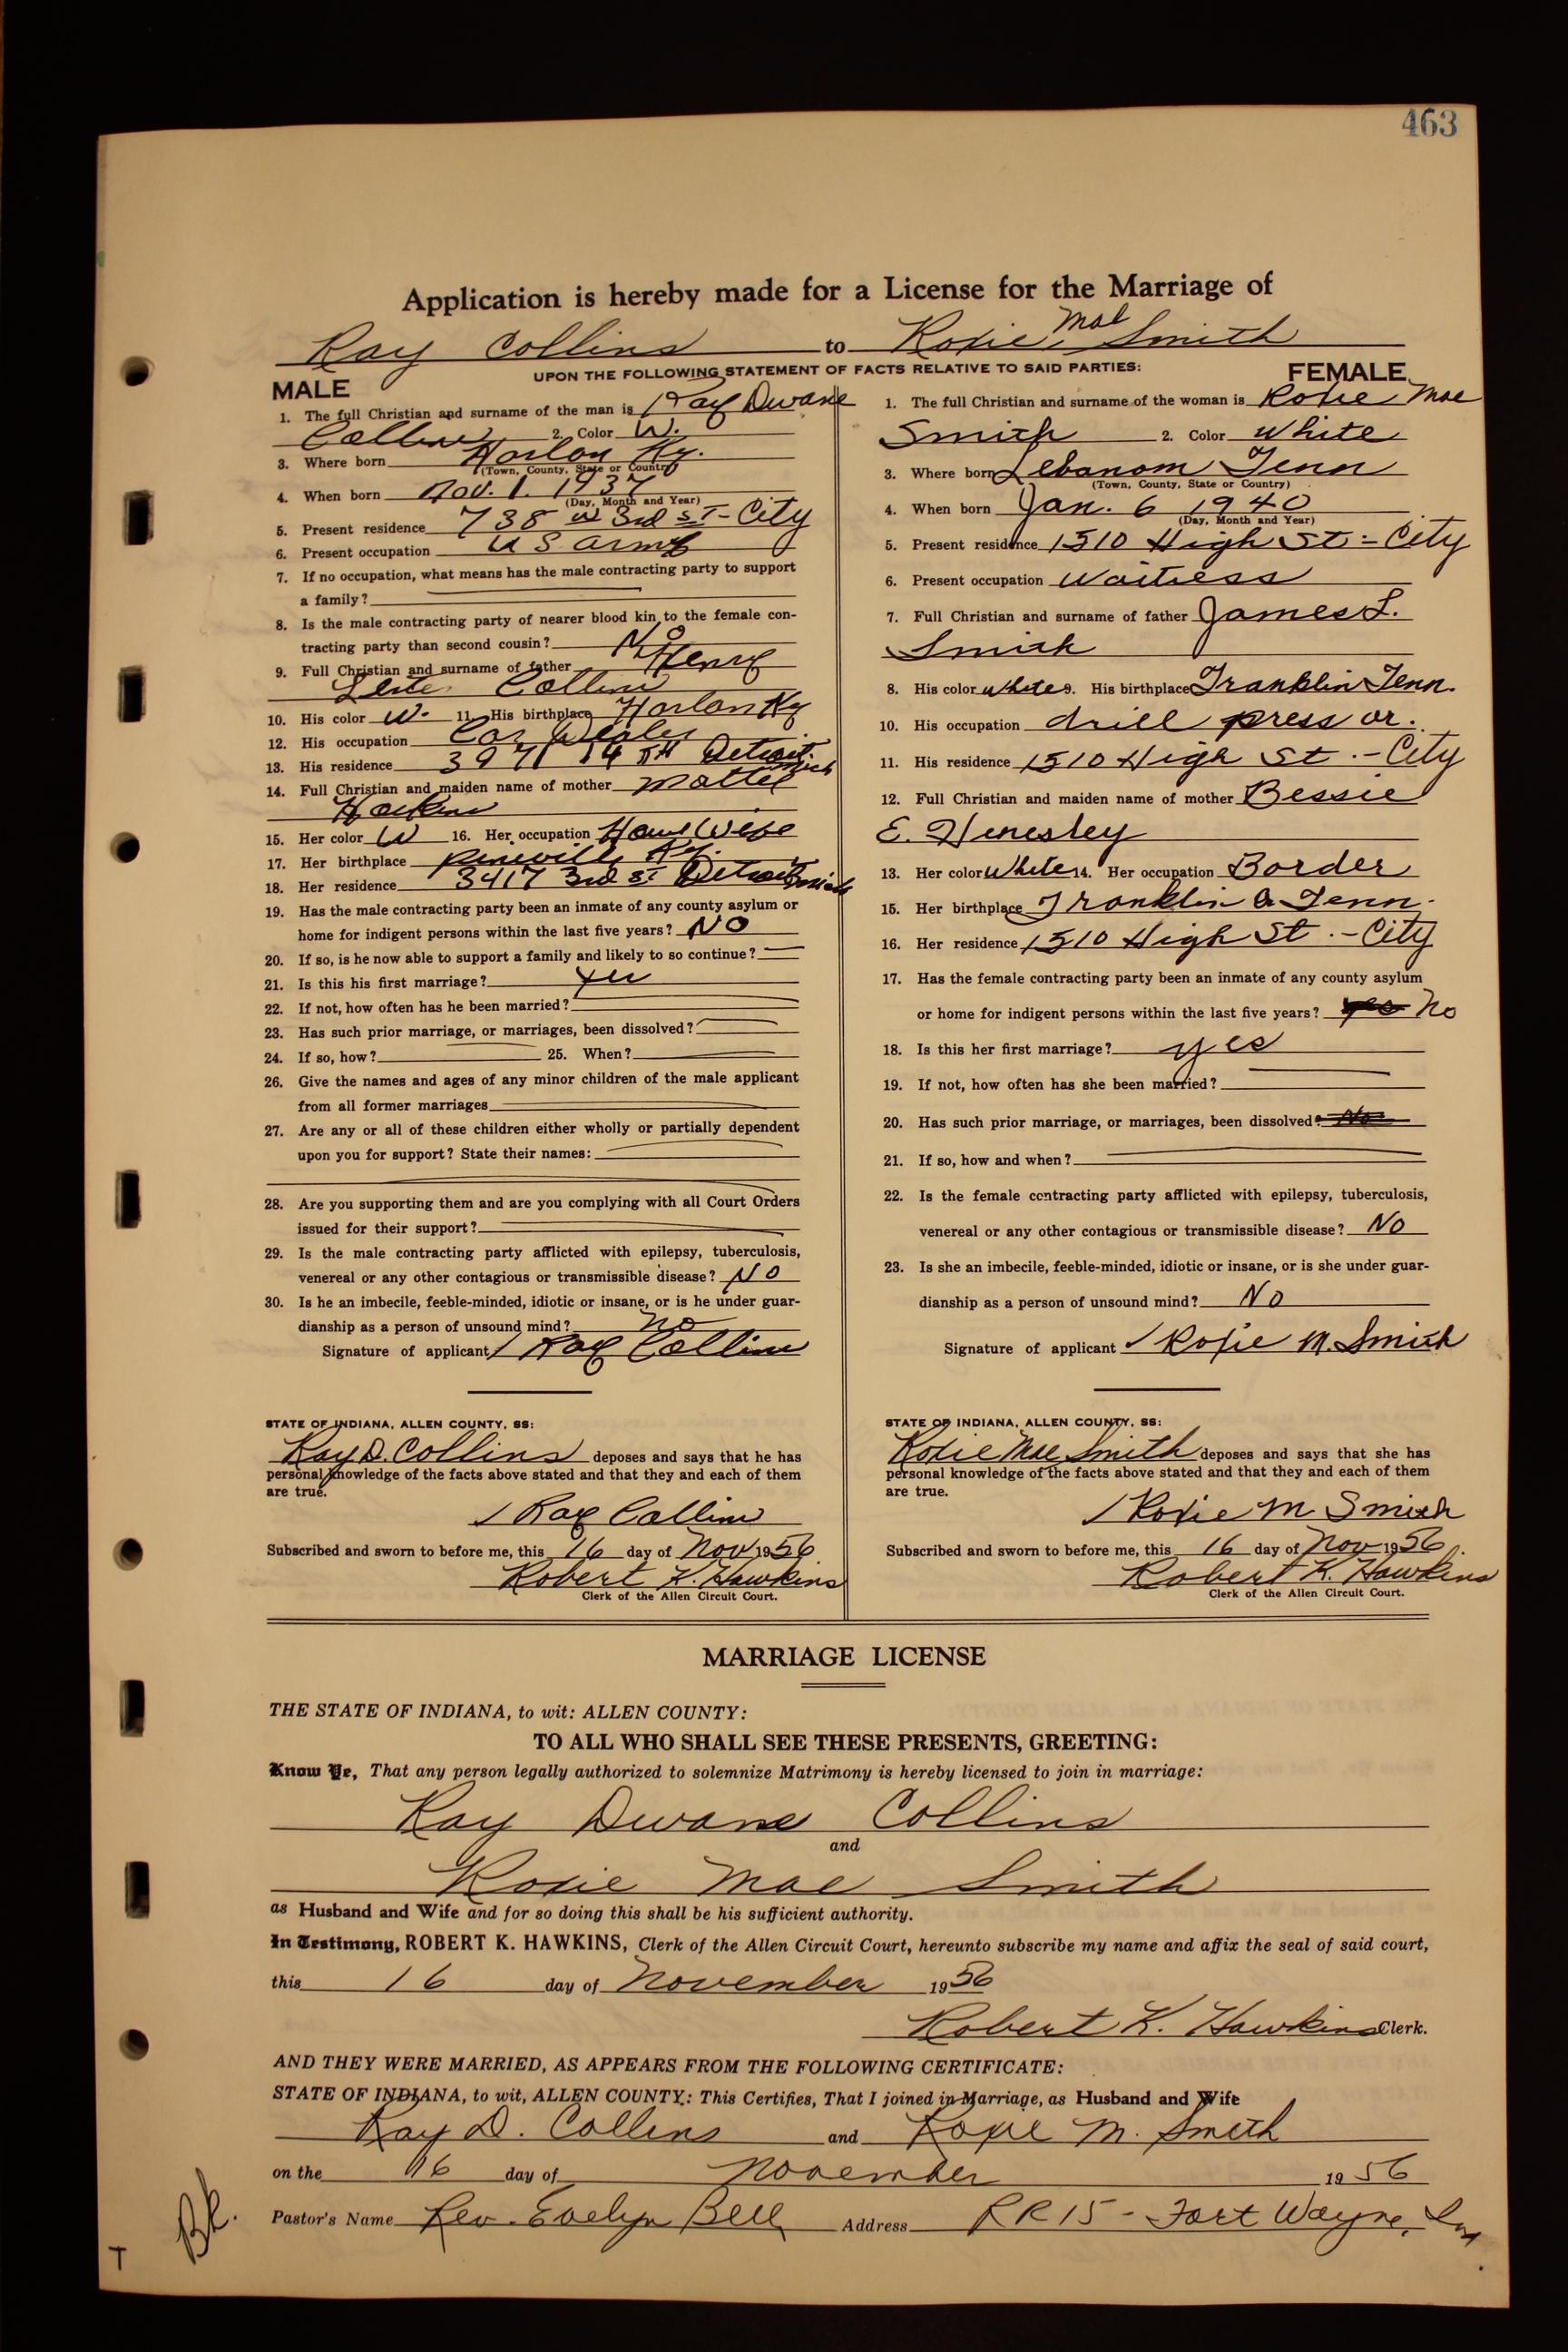 463
Application is hereby made for a License for the Marriage of
Ray Collins to Roxie Mae Smith
UPON THE FOLLOWING STATEMENT OF FACTS RELATIVE TO SAID PARTIES:
MALE
1. The full Christian and surname of the man is Ray Dwane
Collins 2. Color W.
3. Where born Harlan Ky.
(Town, County, State or Country)
4. When born Nov. 1. 1937
(Day, Month and Year)
5. Present residence 738 W 3rd ST - City
6. Present occupation US Army
7. If no occupation, what means has the male contracting party to support
a family?
8. Is the male contracting party of nearer blood kin to the female con-
tracting party than second cousin? No
9. Full Christian and surname of father Henry
Collins
10. His color W. 11. His birthplace Harlan Ky
12. His occupation Car Dealer
13. His residence 3971 14 TH Detroit Mich
14. Full Christian and maiden name of mother Mattie
15. Her color W 16. Her occupation House Wife
17. Her birthplace Pineville Ky.
18. Her residence 3417 3rd ST Detroit Mich
19. Has the male contracting party been an inmate of any county asylum or
home for indigent persons within the last five years? NO
20. If so, is he now able to support a family and likely to so continue?
21. Is this his first marriage? yes
22. If not, how often has he been married?
23. Has such prior marriage, or marriages, been dissolved?
24. If so, how? 25. When?
26. Give the names and ages of any minor children of the male applicant
from all former marriages
27. Are any or all of these children either wholly or partially dependent
upon you for support? State their names:
28. Are you supporting them and are you complying with all Court Orders
issued for their support?
29. Is the male contracting party afflicted with epilepsy, tuberculosis,
venereal or any other contagious or transmissible disease? NO
30. Is he an imbecile, feeble-minded, idiotic or insane, or is he under guar-
dianship as a person of unsound mind? no
Signature of applicant Ray Collins
STATE OF INDIANA, ALLEN COUNTY, SS:
Ray D. Collins deposes and says that he has
personal knowledge of the facts above stated and that they and each of them
are true.
Ray Collins
Subscribed and sworn to before me, this 16 day of Nov 1956
Robert K. Hawkins
Clerk of the Allen Circuit Court.
FEMALE
1. The full Christian and surname of the woman is Roxie Mae
Smith 2. Color White
3. Where born Lebanom Tenn
(Town, County, State or Country)
4. When born Jan. 6 1940
(Day, Month and Year)
5. Present residence 1510 High St - City
6. Present occupation Waitress
7. Full Christian and surname of father James L.
Smith
8. His color White 9. His birthplace Franklin Tenn.
10. His occupation drill press or.
11. His residence 1510 High St. - City
12. Full Christian and maiden name of mother Bessie
E. Henesley
13. Her color White 14. Her occupation Border
15. Her birthplace Franklin Co Tenn.
16. Her residence 1510 High St. - City
17. Has the female contracting party been an inmate of any county asylum
or home for indigent persons within the last five years? yes No
18. Is this her first marriage? yes
19. If not, how often has she been married?
20. Has such prior marriage, or marriages, been dissolved? No
21. If so, how and when?
22. Is the female contracting party afflicted with epilepsy, tuberculosis,
venereal or any other contagious or transmissible disease? No
23. Is she an imbecile, feeble-minded, idiotic or insane, or is she under guar-
dianship as a person of unsound mind? No
Signature of applicant Roxie M. Smith
STATE OF INDIANA, ALLEN COUNTY, SS:
Roxie Mae Smith deposes and says that she has
personal knowledge of the facts above stated and that they and each of them
are true.
Roxie M Smith
Subscribed and sworn to before me, this 16 day of Nov 1956.
Robert K. Hawkins
Clerk of the Allen Circuit Court.
MARRIAGE LICENSE
THE STATE OF INDIANA, to wit: ALLEN COUNTY:
TO ALL WHO SHALL SEE THESE PRESENTS, GREETING:
Know Ye, That any person legally authorized to solemnize Matrimony is hereby licensed to join in marriage:
Ray Dwane Collins
and
Roxie Mae Smith
as Husband and Wife and for so doing this shall be his sufficient authority.
In Testimony, ROBERT K. HAWKINS, Clerk of the Allen Circuit Court, hereunto subscribe my name and affix the seal of said court,
this 16 day of November 1956
Robert K. Hawkins Clerk.
AND THEY WERE MARRIED, AS APPEARS FROM THE FOLLOWING CERTIFICATE:
STATE OF INDIANA, to wit, ALLEN COUNTY: This Certifies, That I joined in Marriage, as Husband and Wife
Ray D. Collins and Roxie M. Smith
on the 16 day of November 1956
Pastor's Name Rev. Evelyn Bell Address RR 15 - Fort Wayne, Ind.
Bk.
T